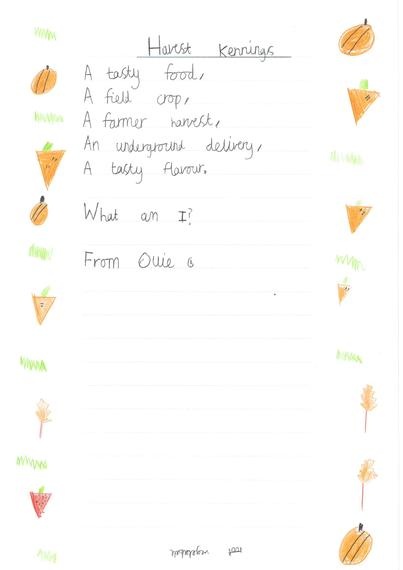 Havest Kennings
A tasty food,
A field crop,
A farmer harvest,
An underground delivery,
A tasty flavour.
What am I?
From Ollie B
root vegetable